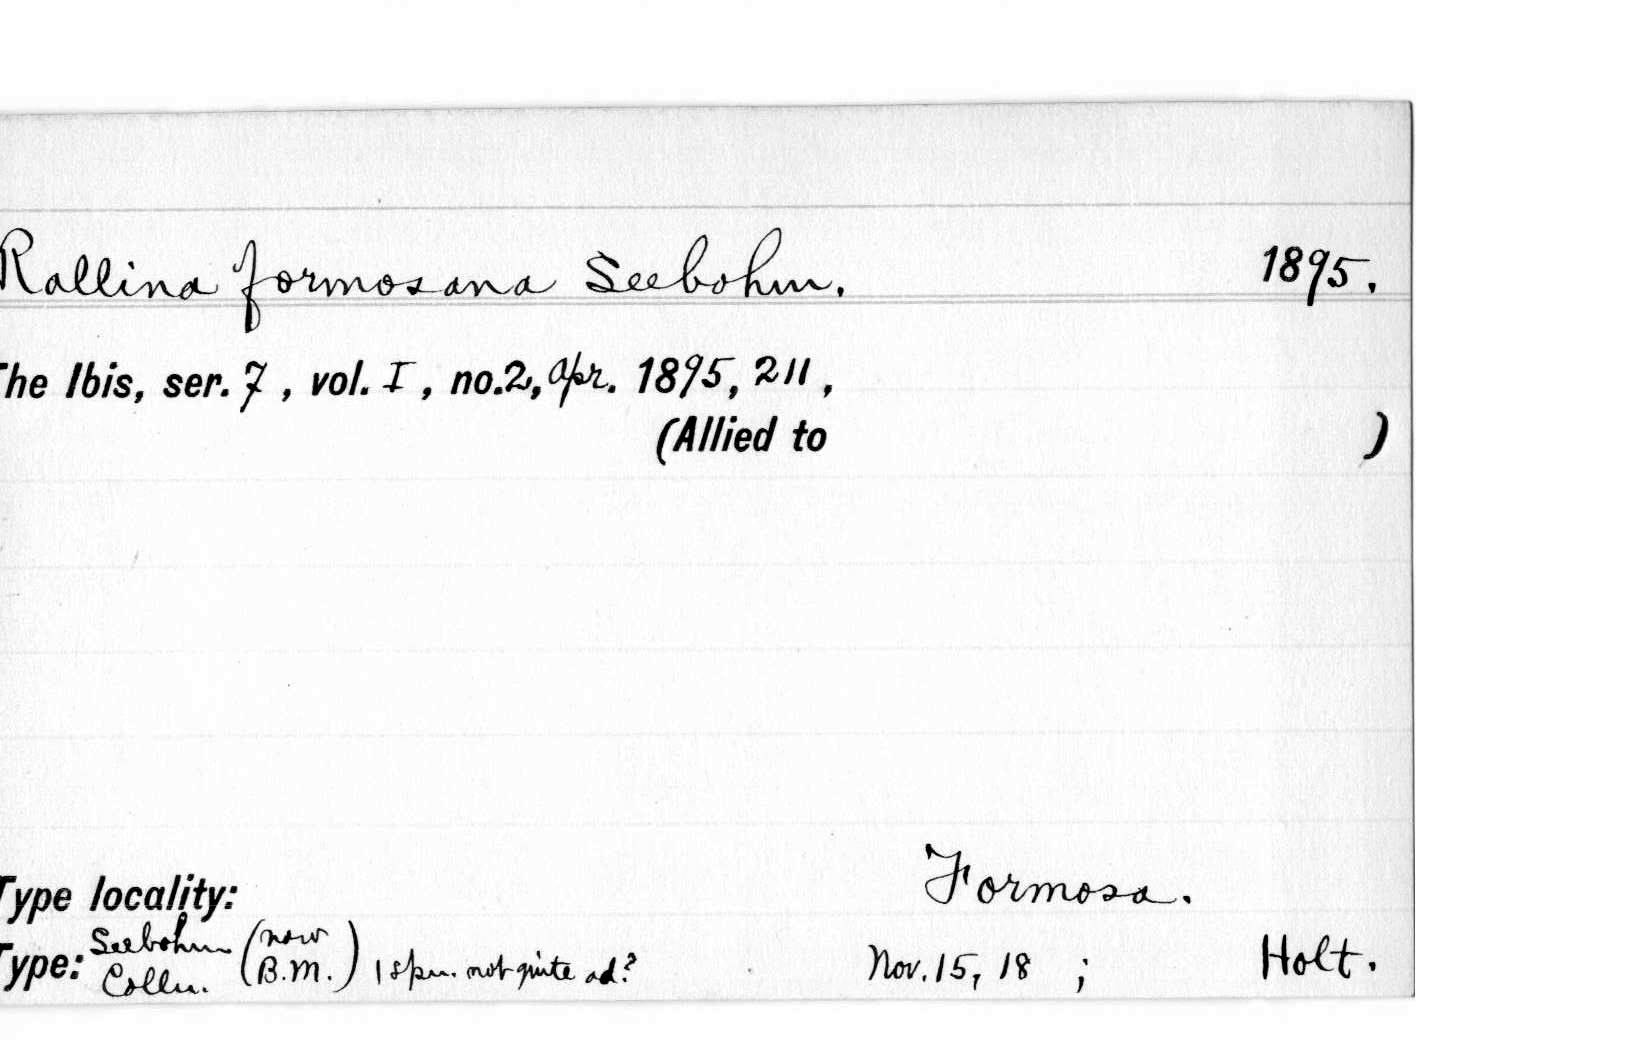 Rallina formosana Seebohm. 1895.
The Ibis, ser. 7, vol. I, no. 2, Apr. 1895, 211,
(Allied to )
Type locality: Formosa.
Type: Seebohm Colln. (now B.M.) 1 spm. not quite ad? Nov. 15, 18 ; Holt.